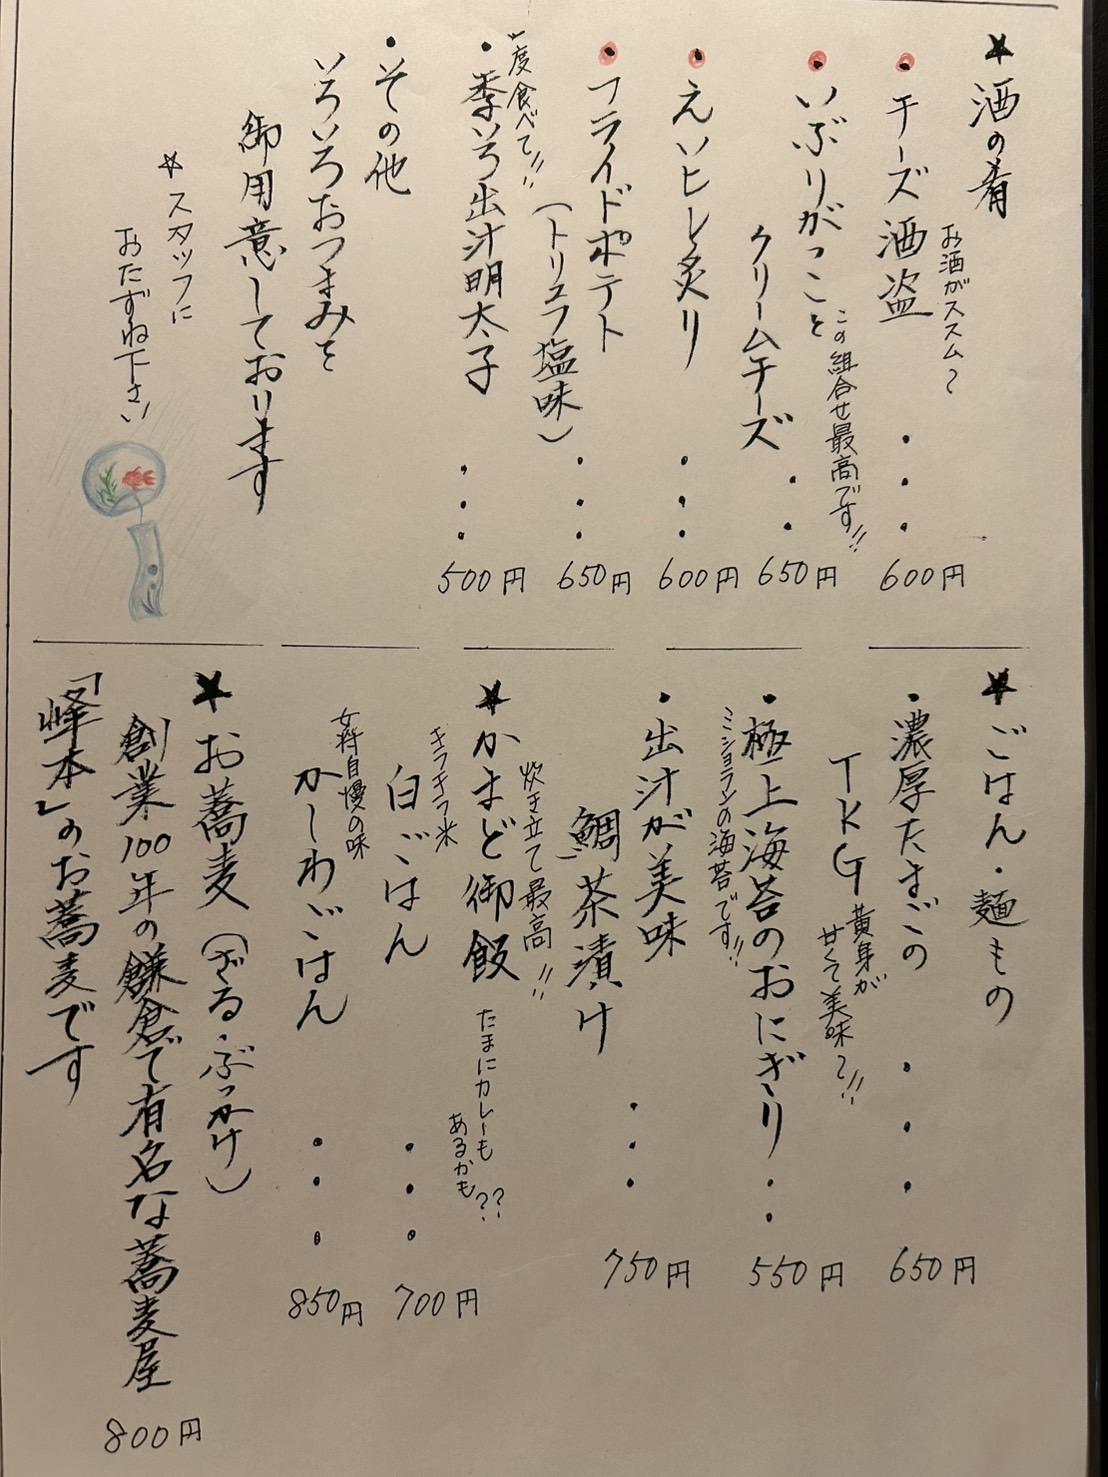 ★酒の肴
チーズ酒盗
お酒がススム〜
600円
いぶりがっこと
クリームチーズ
この組合せ最高です!!
650円
えいヒレ炙り
600円
フライドポテト
(トリュフ塩味)
650円
一度食べて!!
・季いろ出汁明太子
500円
・その他
いろいろおつまみを
御用意しております
☆スタッフに
おたずね下さい
★ごはん・麺もの
・濃厚たまごの
TKG
黄身が
甘くて美味〜!!
650円
・極上海苔のおにぎり
ミシュランの海苔です!!
550円
・出汁が美味
鯛茶漬け
750円
★かまど御飯
炊き立て最高!!
たまにカレーも
あるかも??
キラキラ米
白ごはん
700円
女将自慢の味
かしわごはん
850円
★お蕎麦(ざる・ぶっかけ)
創業100年の鎌倉で有名な蕎麦屋
「峰本」のお蕎麦です
800円